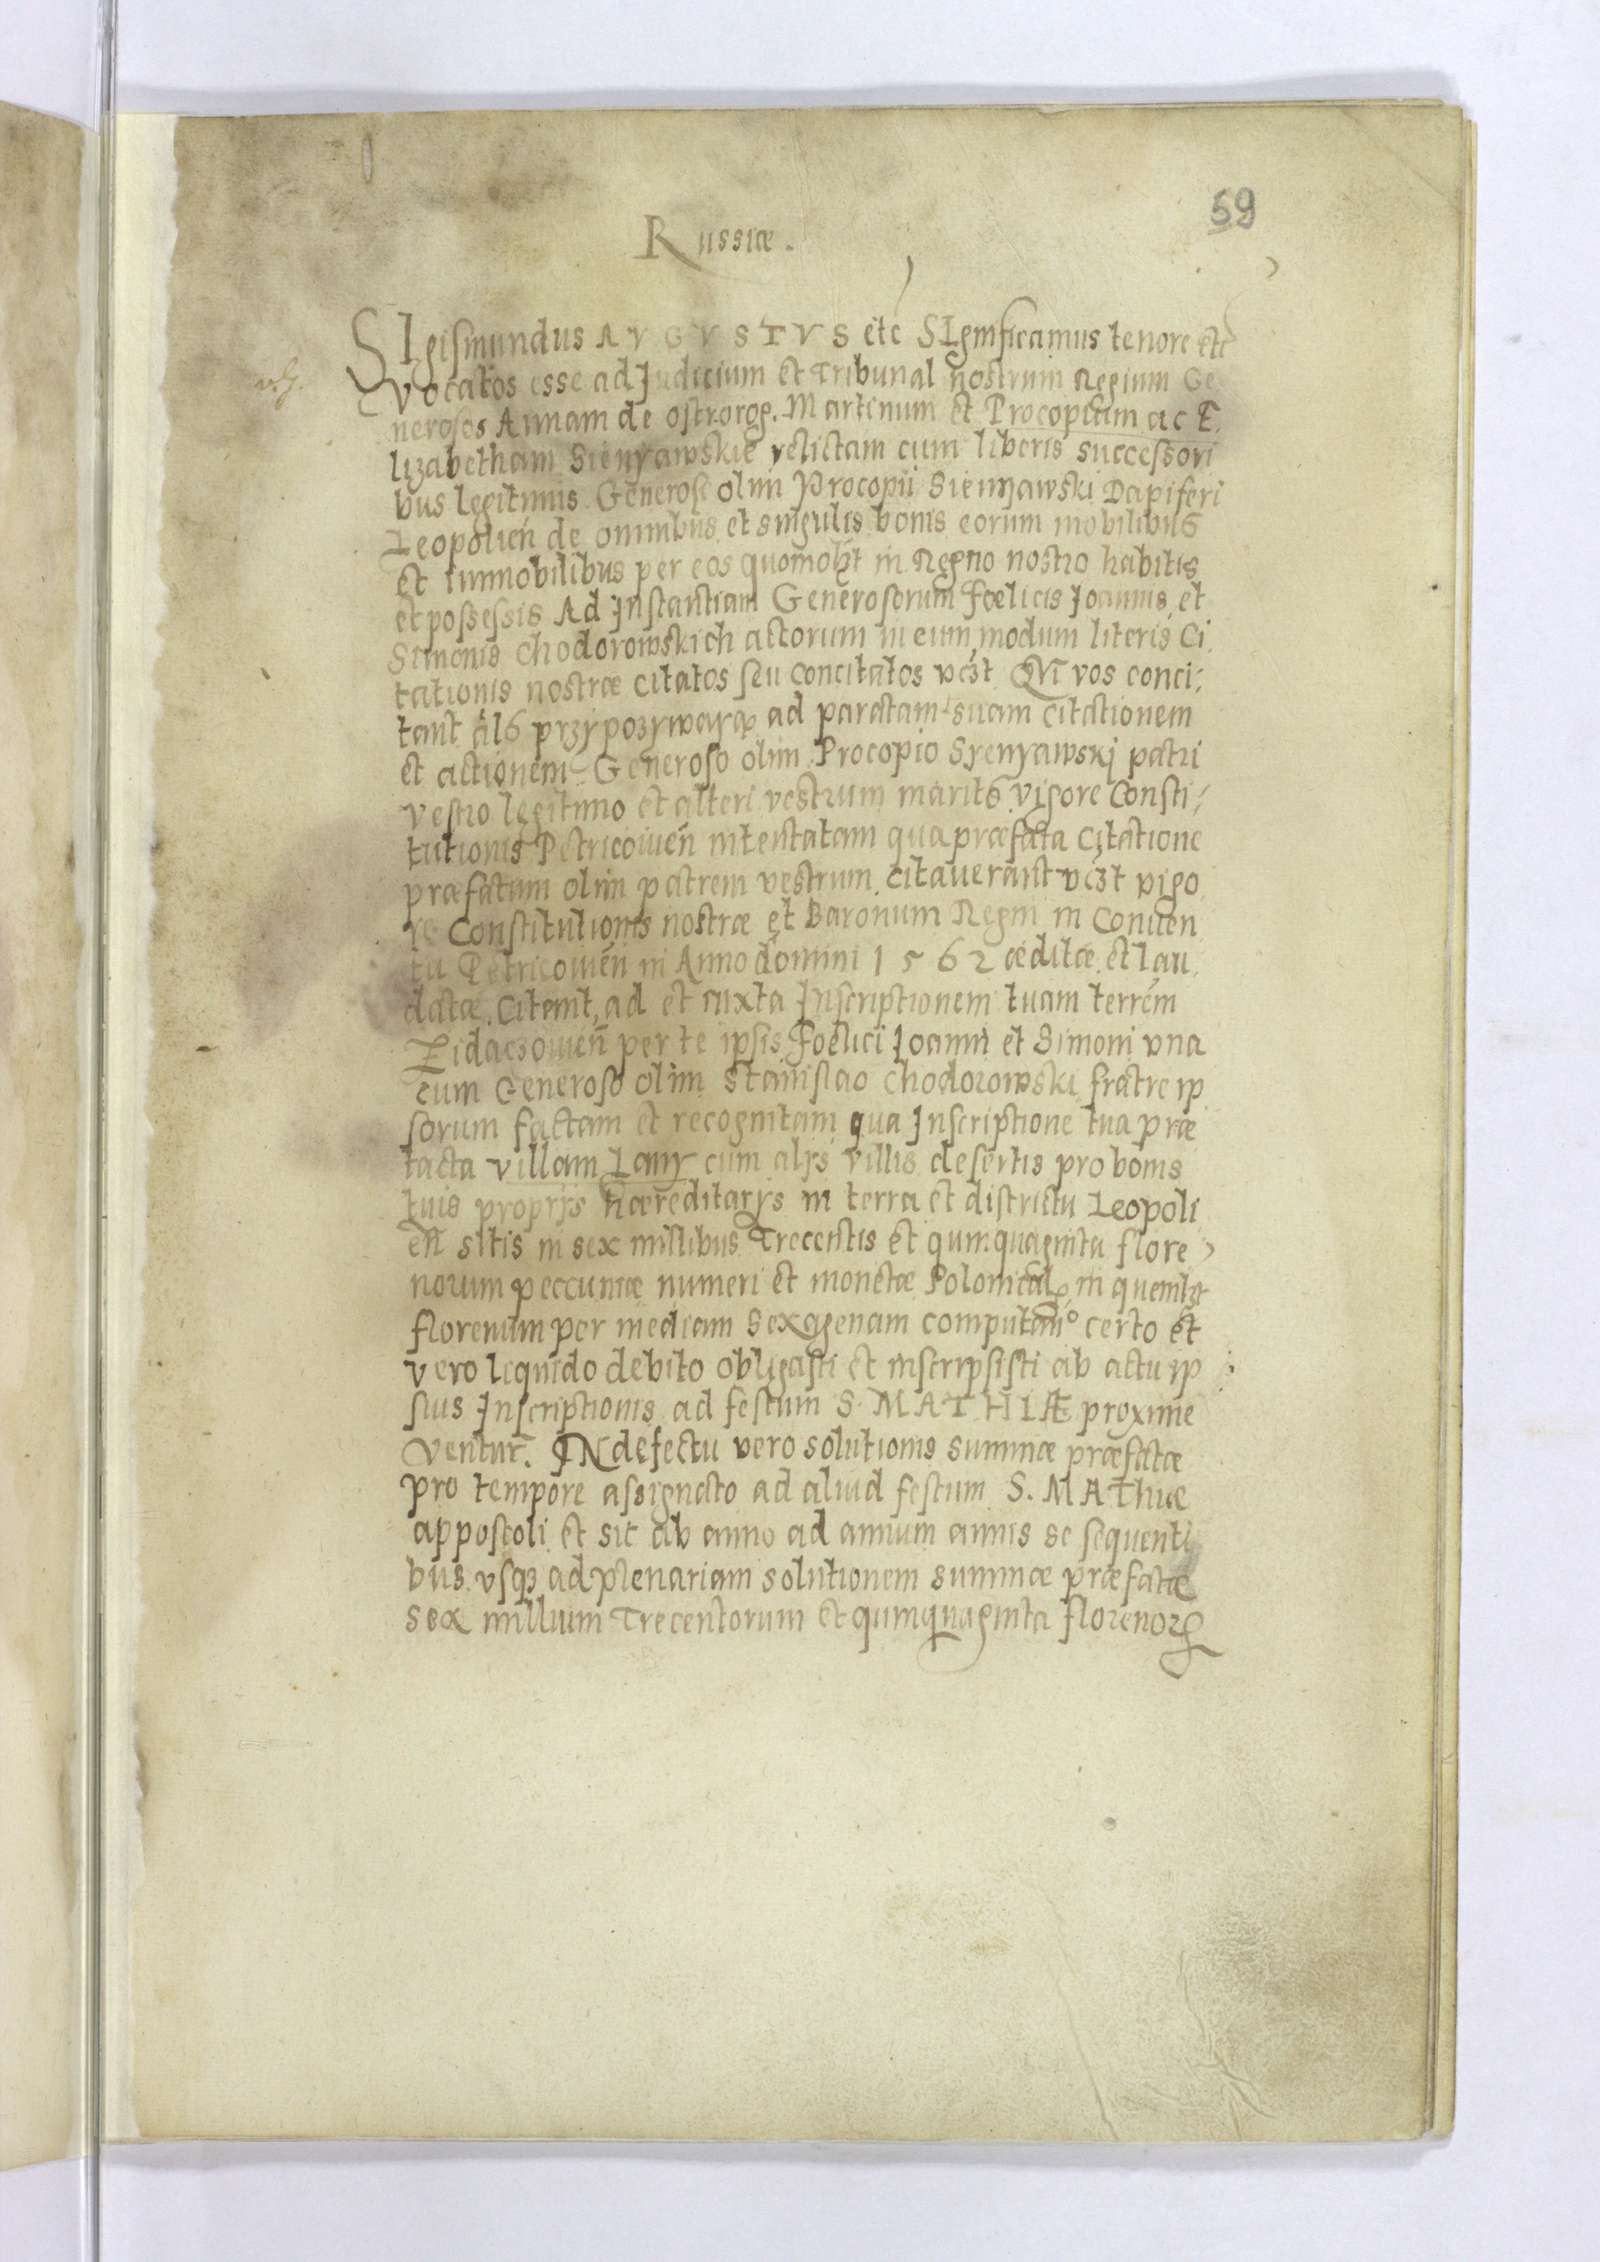 59
Russiæ.
SIgismundus AVGVSTVS etc SIgnificamus tenore etc
vocatos esse ad Judicium et Tribunal nostrum Regium Ge
nerosos Annam de ostrorog. Martinum et Procopium ac E,
lizabetham Sienyawskie relictam cum liberis successori
bus legitimis Generosi olim Procopii Sienyawski Dapiferi
Leopolień de omnibus et singulis bonis eorum mobilibus
et Immobilibus per eos quomolt in Regno nostro habitis
et possessis Ad Instantiam Generosorum Foelicis Joannis et
Simonis Chodorowskich actorum in eum modum literis Ci,
tationis nostræ citatos seu concitatos vczt QVI vos conci:
tant als przypozywayą ad paratam suam citationem
et actionem Generoso olim Procopio Syenyawskj patri
vestro legitimo et alteri vestrum marito vigore Consti:
tutionis Petricouień intentatam qua præfata Citatione
præfatum olim patrem vestrum citauerant vczt vigo
re Constitutionis nostræ et Baronum Regni in Conuen
tu Petricouień in Anno domini 1562 æditæ et lau
datæ. Citant, ad et iuxta Inscriptionem tuam terrem
Zidaczouień per te ipsis Foelici Joanni et Simoni vna
cum Generoso olim Stanislao Chodorowski fratre ip
sorum factam et recognitam qua Inscriptione tua præ
tacta villam Lany cum alys villis desertis pro bonis
tuis proprys hæreditarys in terra et districtu Leopoli
eń sitis in sex millibus Trecentis et quinquaginta flore
norum peccuniæ numeri et monetæ Polonical in quemlt
florenum per mediam sexagenam computand certo et
vero liquido debito obligasti et inscripsisti ab actu ip
sius Inscriptionis ad festum S. MATHIÆ proxime
Ventur. INdefectu vero solutionis summæ præfatæ
pro tempore assignato ad aliud festum S. MAThiæ
appostoli et sic ab anno ad annum annis se sequenti
bus vsqз ad plenariam solutionem summæ præfatæ
sex millium Trecentorum et quinquaginta florenorꝝ